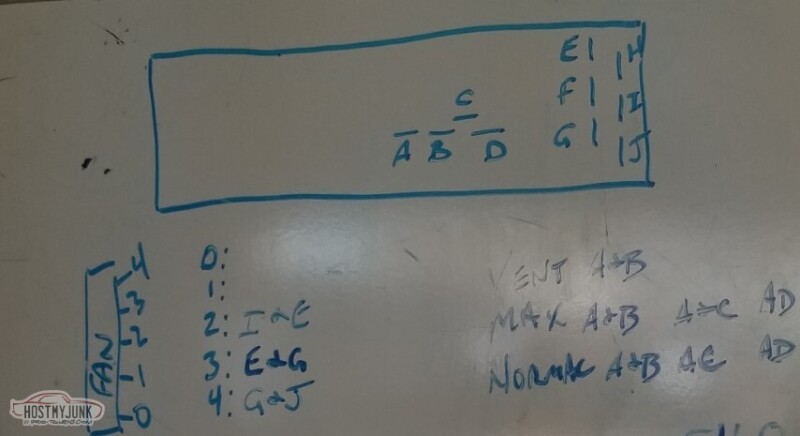 E H
C F I
A B D G J
4 0: VENT A&B
3 1:
2 2: I&E MAX A&B A&C AD
1 3: E&G NORMAL A&B AC AD
0 4: G&J
FAN
HOSTMYJUNK